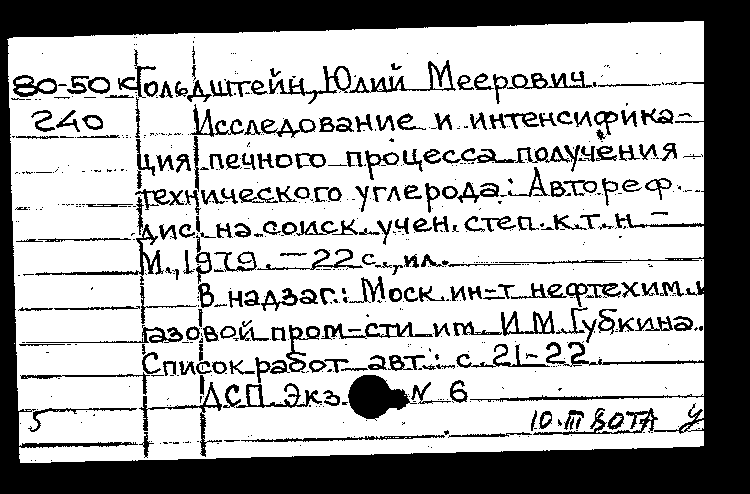 80-50к Гольдштейн, Юлий Меерович.
240 Исследование и интенсифика-
ция печного процесса получения
технического углерода: Автореф.
дис. на соиск. учен. степ. к.т.н. –
М., 1979. – 22 с., ил.
В надзаг.: Моск. ин-т нефтехим. и
газовой пром-сти им. И.М. Губкина.
Список работ авт.: с. 21-22.
ДСП. Экз. N 6
5 10.III 80